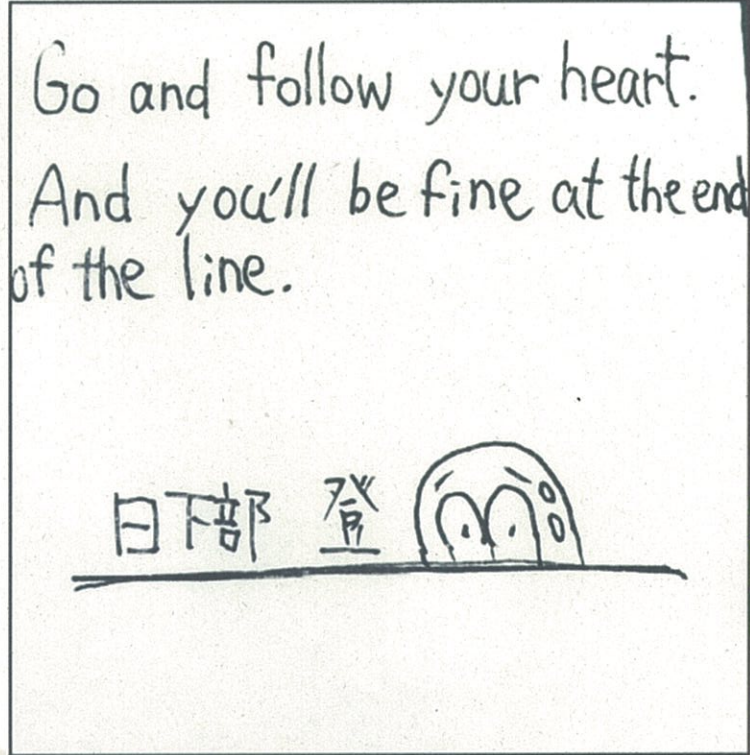 Go and follow your heart.
And you'll be fine at the end
of the line.
日下部 登